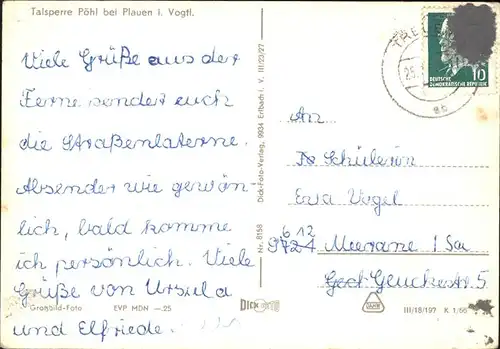 Talsperre Pöhl bei Plauen i. Vogtl.
Viele Grüße aus der
Ferne sendet euch
die Straßenlaterne.
Absender wie gewön-
lich, bald komme
ich persönlich. Viele
Grüße von Ursula
und Elfriede.
Großbild-Foto EVP MDN —.25
Nr. 8158 Dick-Foto-Verlag, 9934 Erlbach i. V. III/23/27
DICK
DEUTSCHE
DEMOKRATISCHE REPUBLIK
10
An
Schülerin
Eva Vogel
612
Meerane / Sa
Geschw.
5
III/18/197 K 1/66